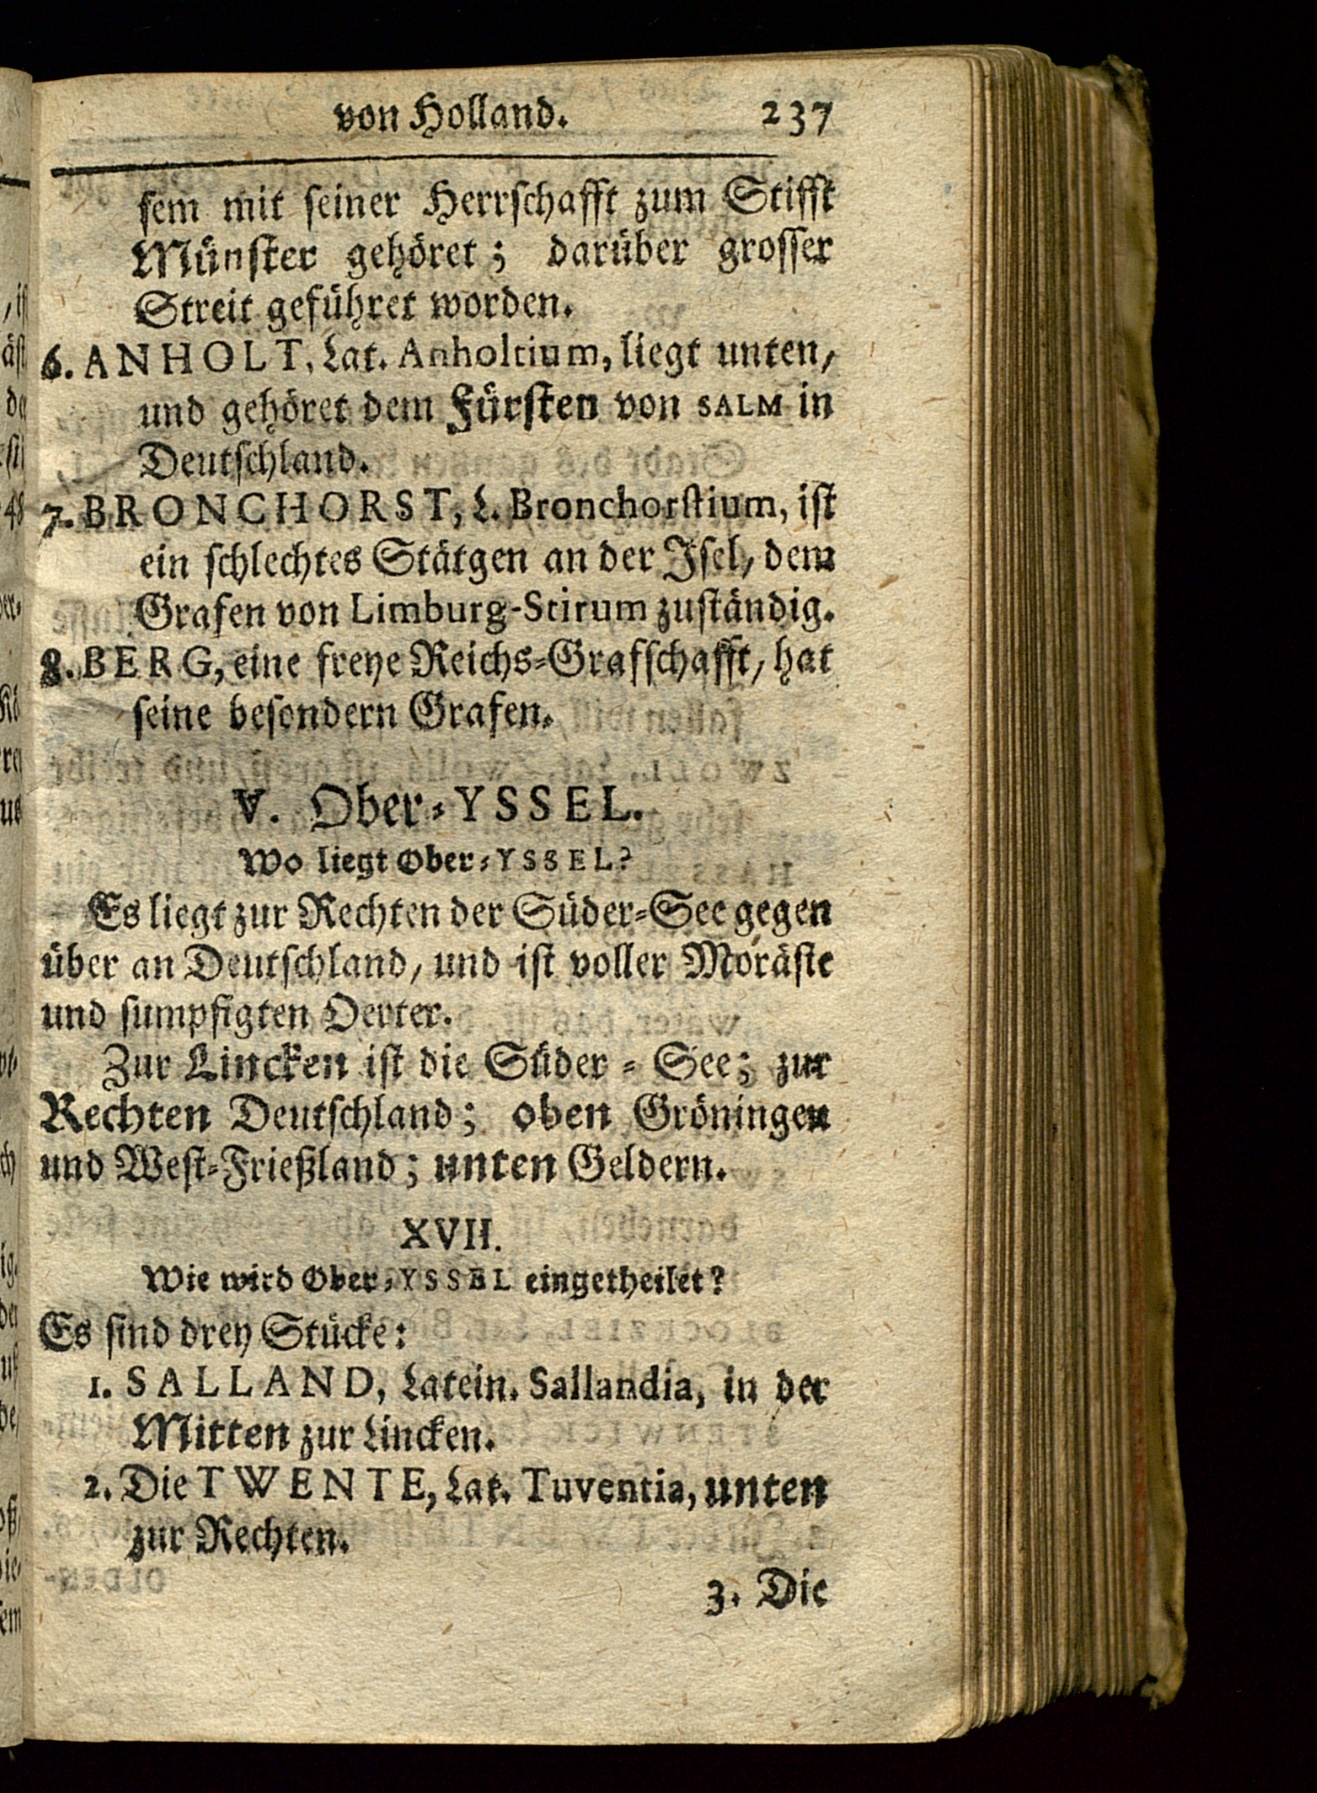 von Holland. 237
sem mit seiner Herrschafft zum Stifft
Münster gehöret; darüber grosser
Streit geführet worden.
6. ANHOLT, Lat. Anholtium, liegt unten,
und gehöret dem Fürsten von SALM in
Deutschland.
7. BRONCHORST, L. Bronchorstium, ist
ein schlechtes Stätgen an der Isel, dem
Grafen von Limburg-Stirum zuständig.
8. BERG, eine freye Reichs-Grafschafft, hat
seine besondern Grafen.
V. Ober-YSSEL.
Wo liegt Ober-YSSEL?
Es liegt zur Rechten der Süder-See gegen
über an Deutschland, und ist voller Moräste
und sumpfigten Oerter.
Zur Lincken ist die Süder-See; zur
Rechten Deutschland; oben Gröningen
und West-Frießland; unten Geldern.
XVII.
Wie wird Ober-YSSEL eingetheilet?
Es sind drey Stücke:
1. SALLAND, Latein. Sallandia, in der
Mitten zur Lincken.
2. Die TWENTE, Lat. Tuventia, unten
zur Rechten.
3. Die